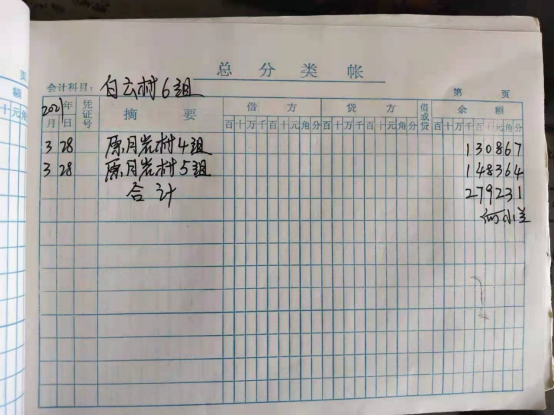 总分类帐
会计科目：白云村6组
第 页
2021年 凭证号 摘要 借方 贷方 借或贷 余额
月 日 百十万千百十元角分 百十万千百十元角分 百十万千百十元角分
3 28 原月岩村4组 130867
3 28 原月岩村5组 148364
合计 279231